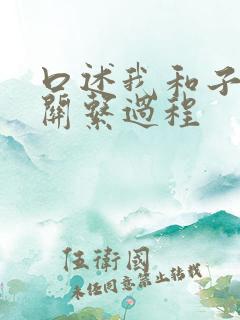 口述我和子
關繫過程
伍衛國
未任同意禁止轉載